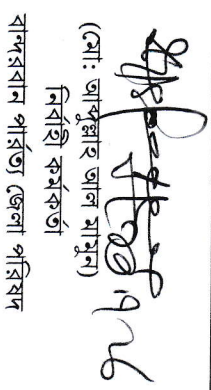 (মো: আব্দুল্লাহ আল মামুন)
নির্বাহি কর্মকর্তা
বান্দরবান পার্বত্য জেলা পরিষদ